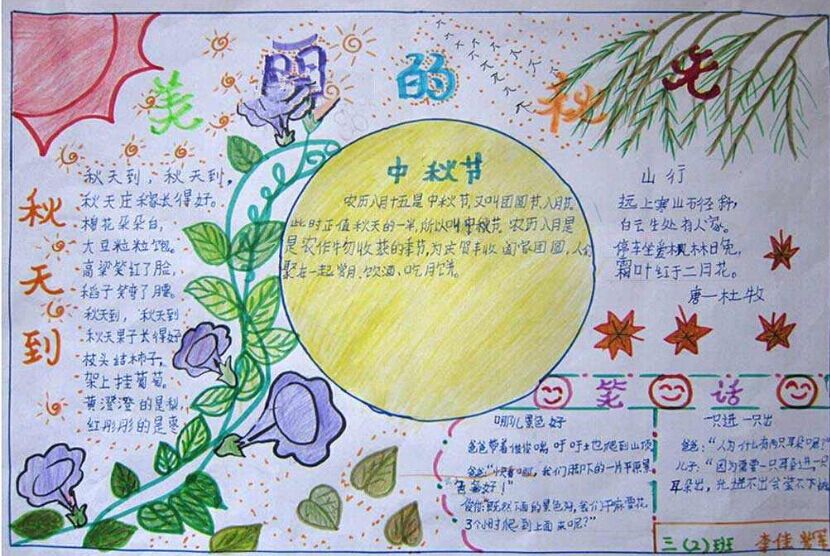 美丽的秋天
秋天到
秋天到，秋天到，
秋天庄稼长得好。
棉花朵朵白，
大豆粒粒饱。
高粱笑红了脸，
稻子笑弯了腰。
秋天到，秋天到
秋天果子长得好
枝头结柿子，
架上挂葡萄。
黄澄澄的是梨，
红彤彤的是枣
中秋节
农历八月十五是中秋节又叫团圆节，八月
此时正值秋天的一半，所以叫中秋节 农历八月是
是农作物收获的季节，为庆贺丰收 阖家团圆，人们
聚在一起赏月、饮酒、吃月饼。
山行
远上寒山石径斜，
白云生处有人家。
停车坐爱枫林晚，
霜叶红于二月花。
唐一杜牧
笑话
哪儿景色好
爸爸带着 爬到山顶
爸爸： 我们脚下的一片平原景
色多好！"
既然下面的景色好，我们干嘛要花
3个小时爬到上面来呢？"
一只进一只出
爸爸："人为什么有两只耳朵呢
儿子："因为需要一只耳朵进一只
耳朵出，先进不出会装不下
三(2)班 李佳